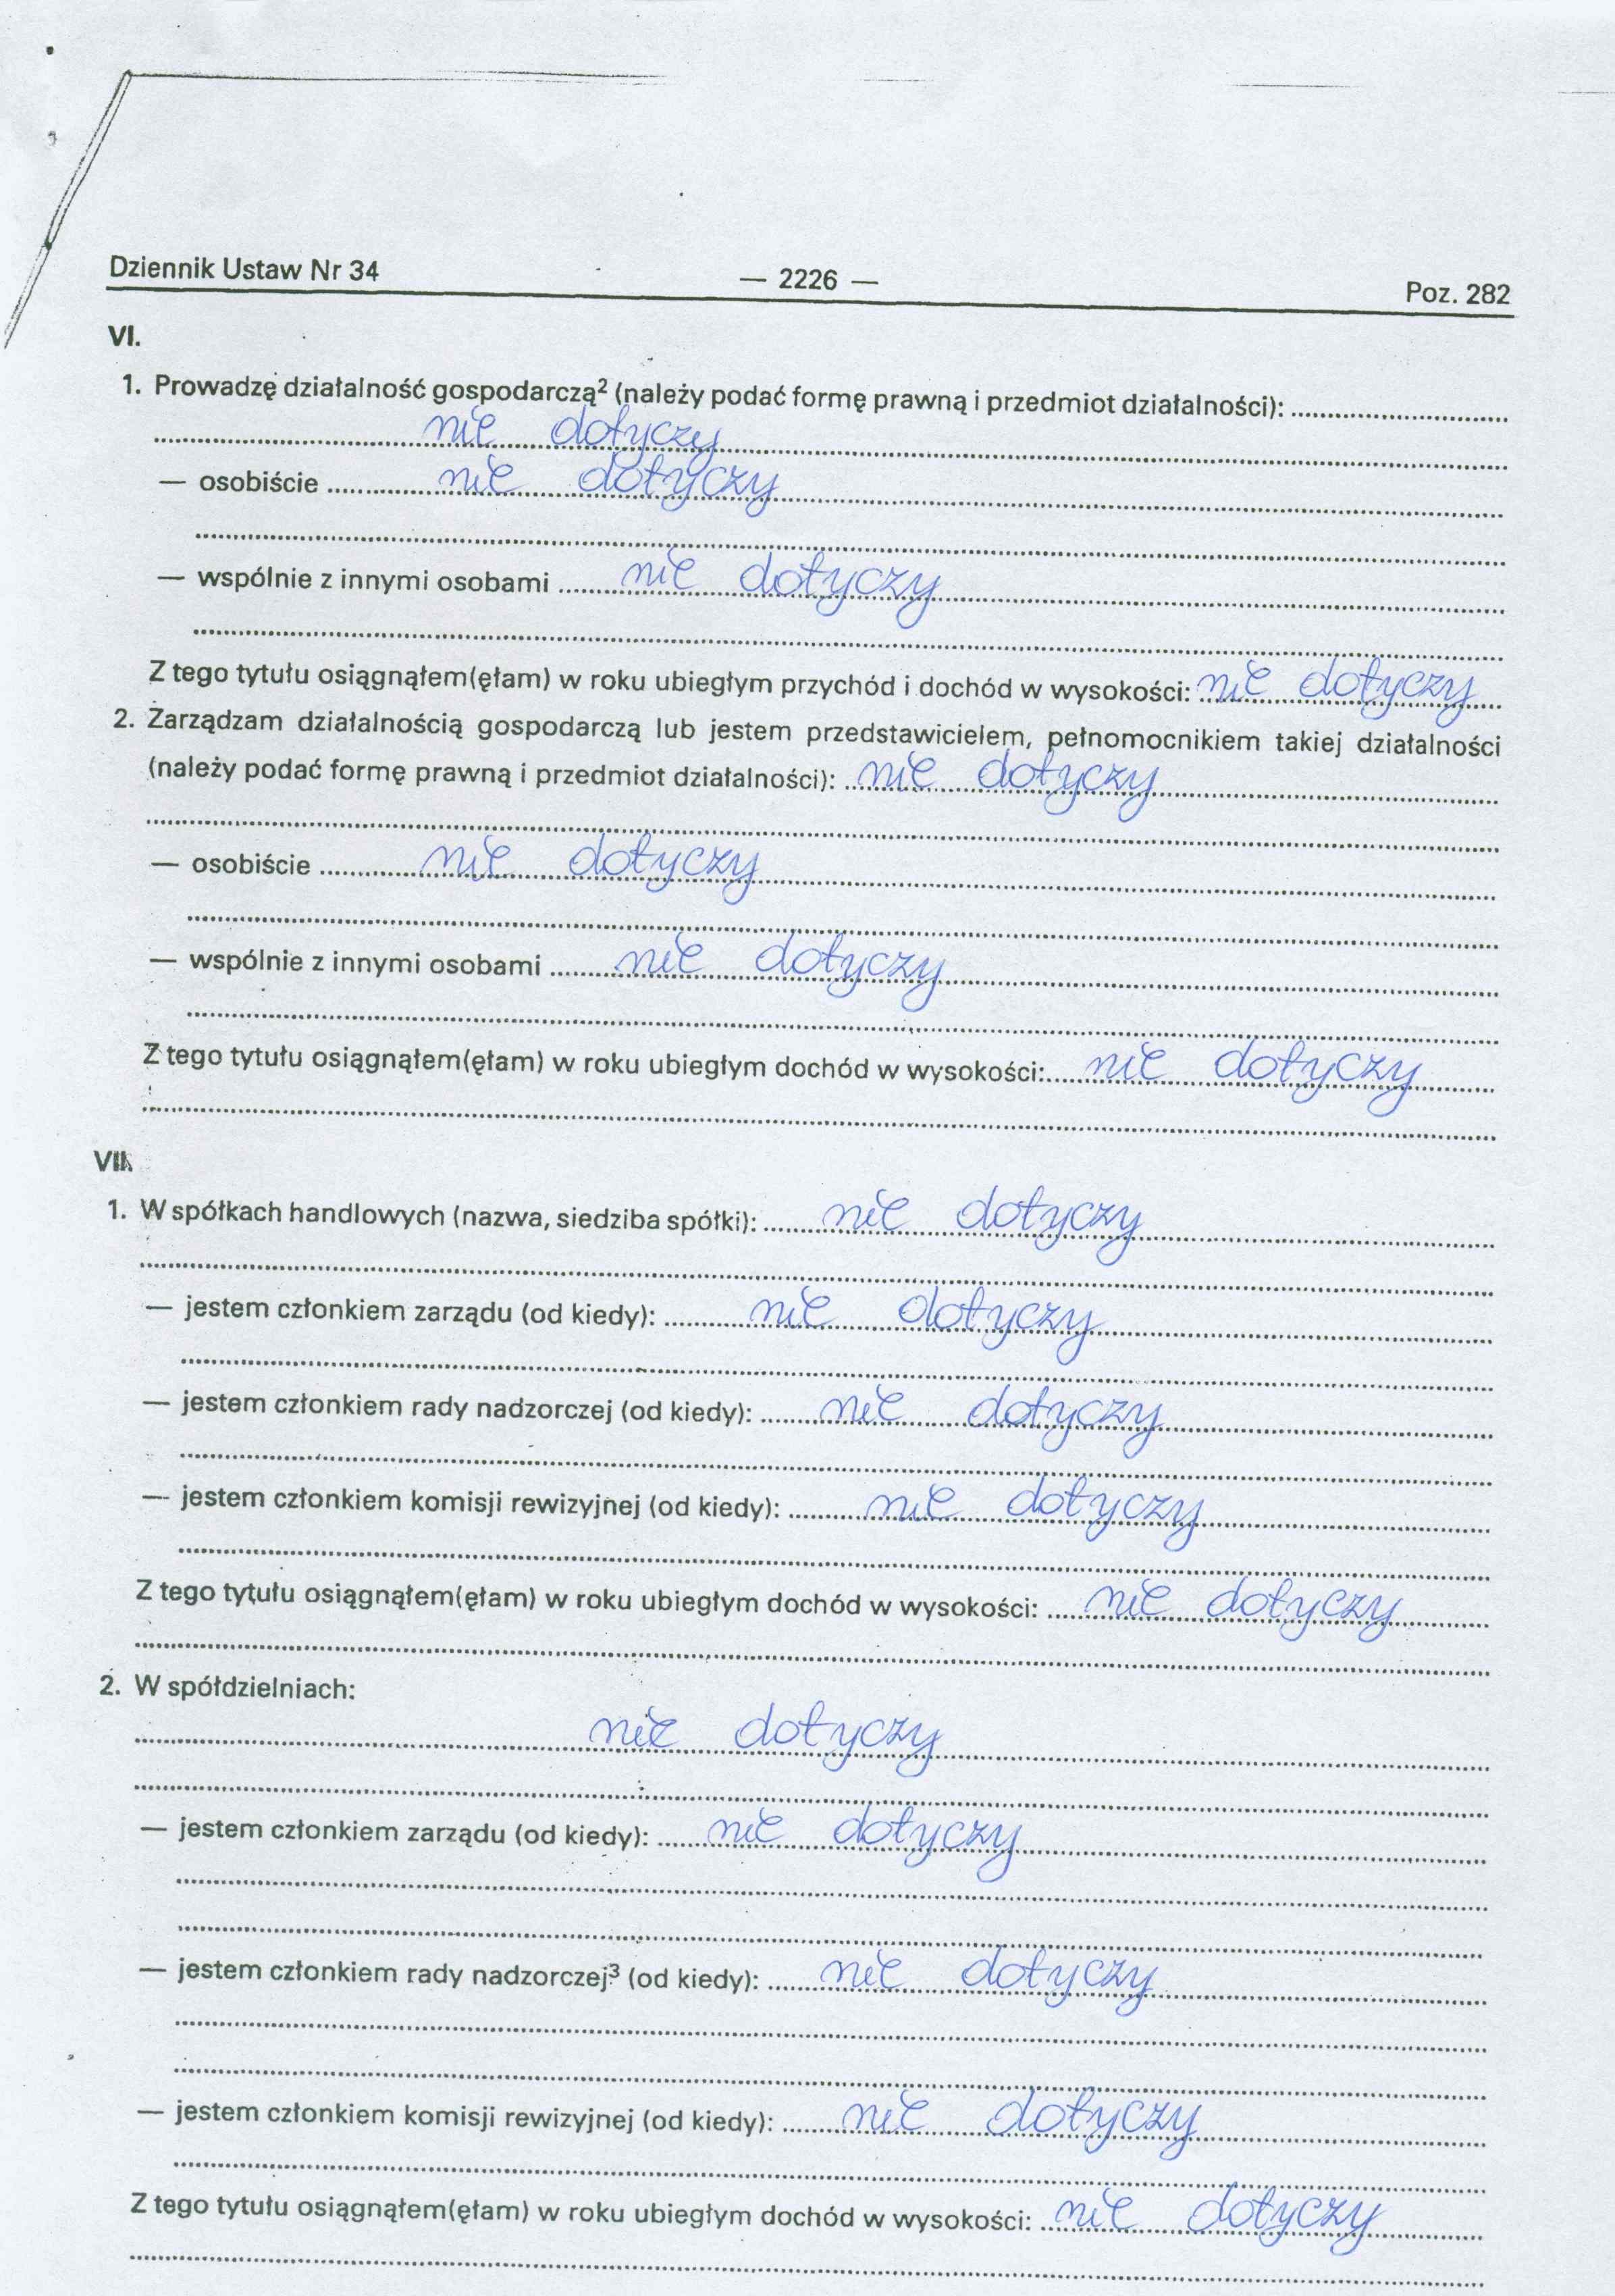 Dziennik Ustaw Nr 34 — 2226 — Poz. 282
VI.
1. Prowadzę działalność gospodarczą² (należy podać formę prawną i przedmiot działalności):
nie dotyczy
— osobiście nie dotyczy
— wspólnie z innymi osobami nie dotyczy
Z tego tytułu osiągnąłem(ęłam) w roku ubiegłym przychód i dochód w wysokości: nie dotyczy
2. Zarządzam działalnością gospodarczą lub jestem przedstawicielem, pełnomocnikiem takiej działalności
(należy podać formę prawną i przedmiot działalności): nie dotyczy
— osobiście nie dotyczy
— wspólnie z innymi osobami nie dotyczy
Z tego tytułu osiągnąłem(ęłam) w roku ubiegłym dochód w wysokości: nie dotyczy
VII.
1. W spółkach handlowych (nazwa, siedziba spółki): nie dotyczy
— jestem członkiem zarządu (od kiedy): nie dotyczy
— jestem członkiem rady nadzorczej (od kiedy): nie dotyczy
— jestem członkiem komisji rewizyjnej (od kiedy): nie dotyczy
Z tego tytułu osiągnąłem(ęłam) w roku ubiegłym dochód w wysokości: nie dotyczy
2. W spółdzielniach:
nie dotyczy
— jestem członkiem zarządu (od kiedy): nie dotyczy
— jestem członkiem rady nadzorczej³ (od kiedy): nie dotyczy
— jestem członkiem komisji rewizyjnej (od kiedy): nie dotyczy
Z tego tytułu osiągnąłem(ęłam) w roku ubiegłym dochód w wysokości: nie dotyczy